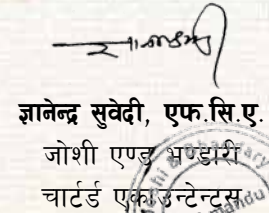 ज्ञानेन्द्र सुवेदी, एफ.सि.ए.
जोशी एण्ड भण्डारी
चार्टर्ड एकाउन्टेन्ट्स